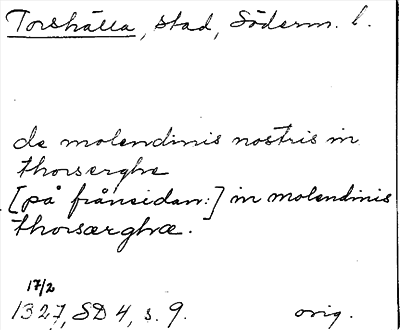 Torshälla, stad, Söderm. l.
de molendinis nostris in
thorserghe
[på frånsidan:] in molendinis
thorsærghæ.
17/2
1327, SD 4, s. 9. orig.